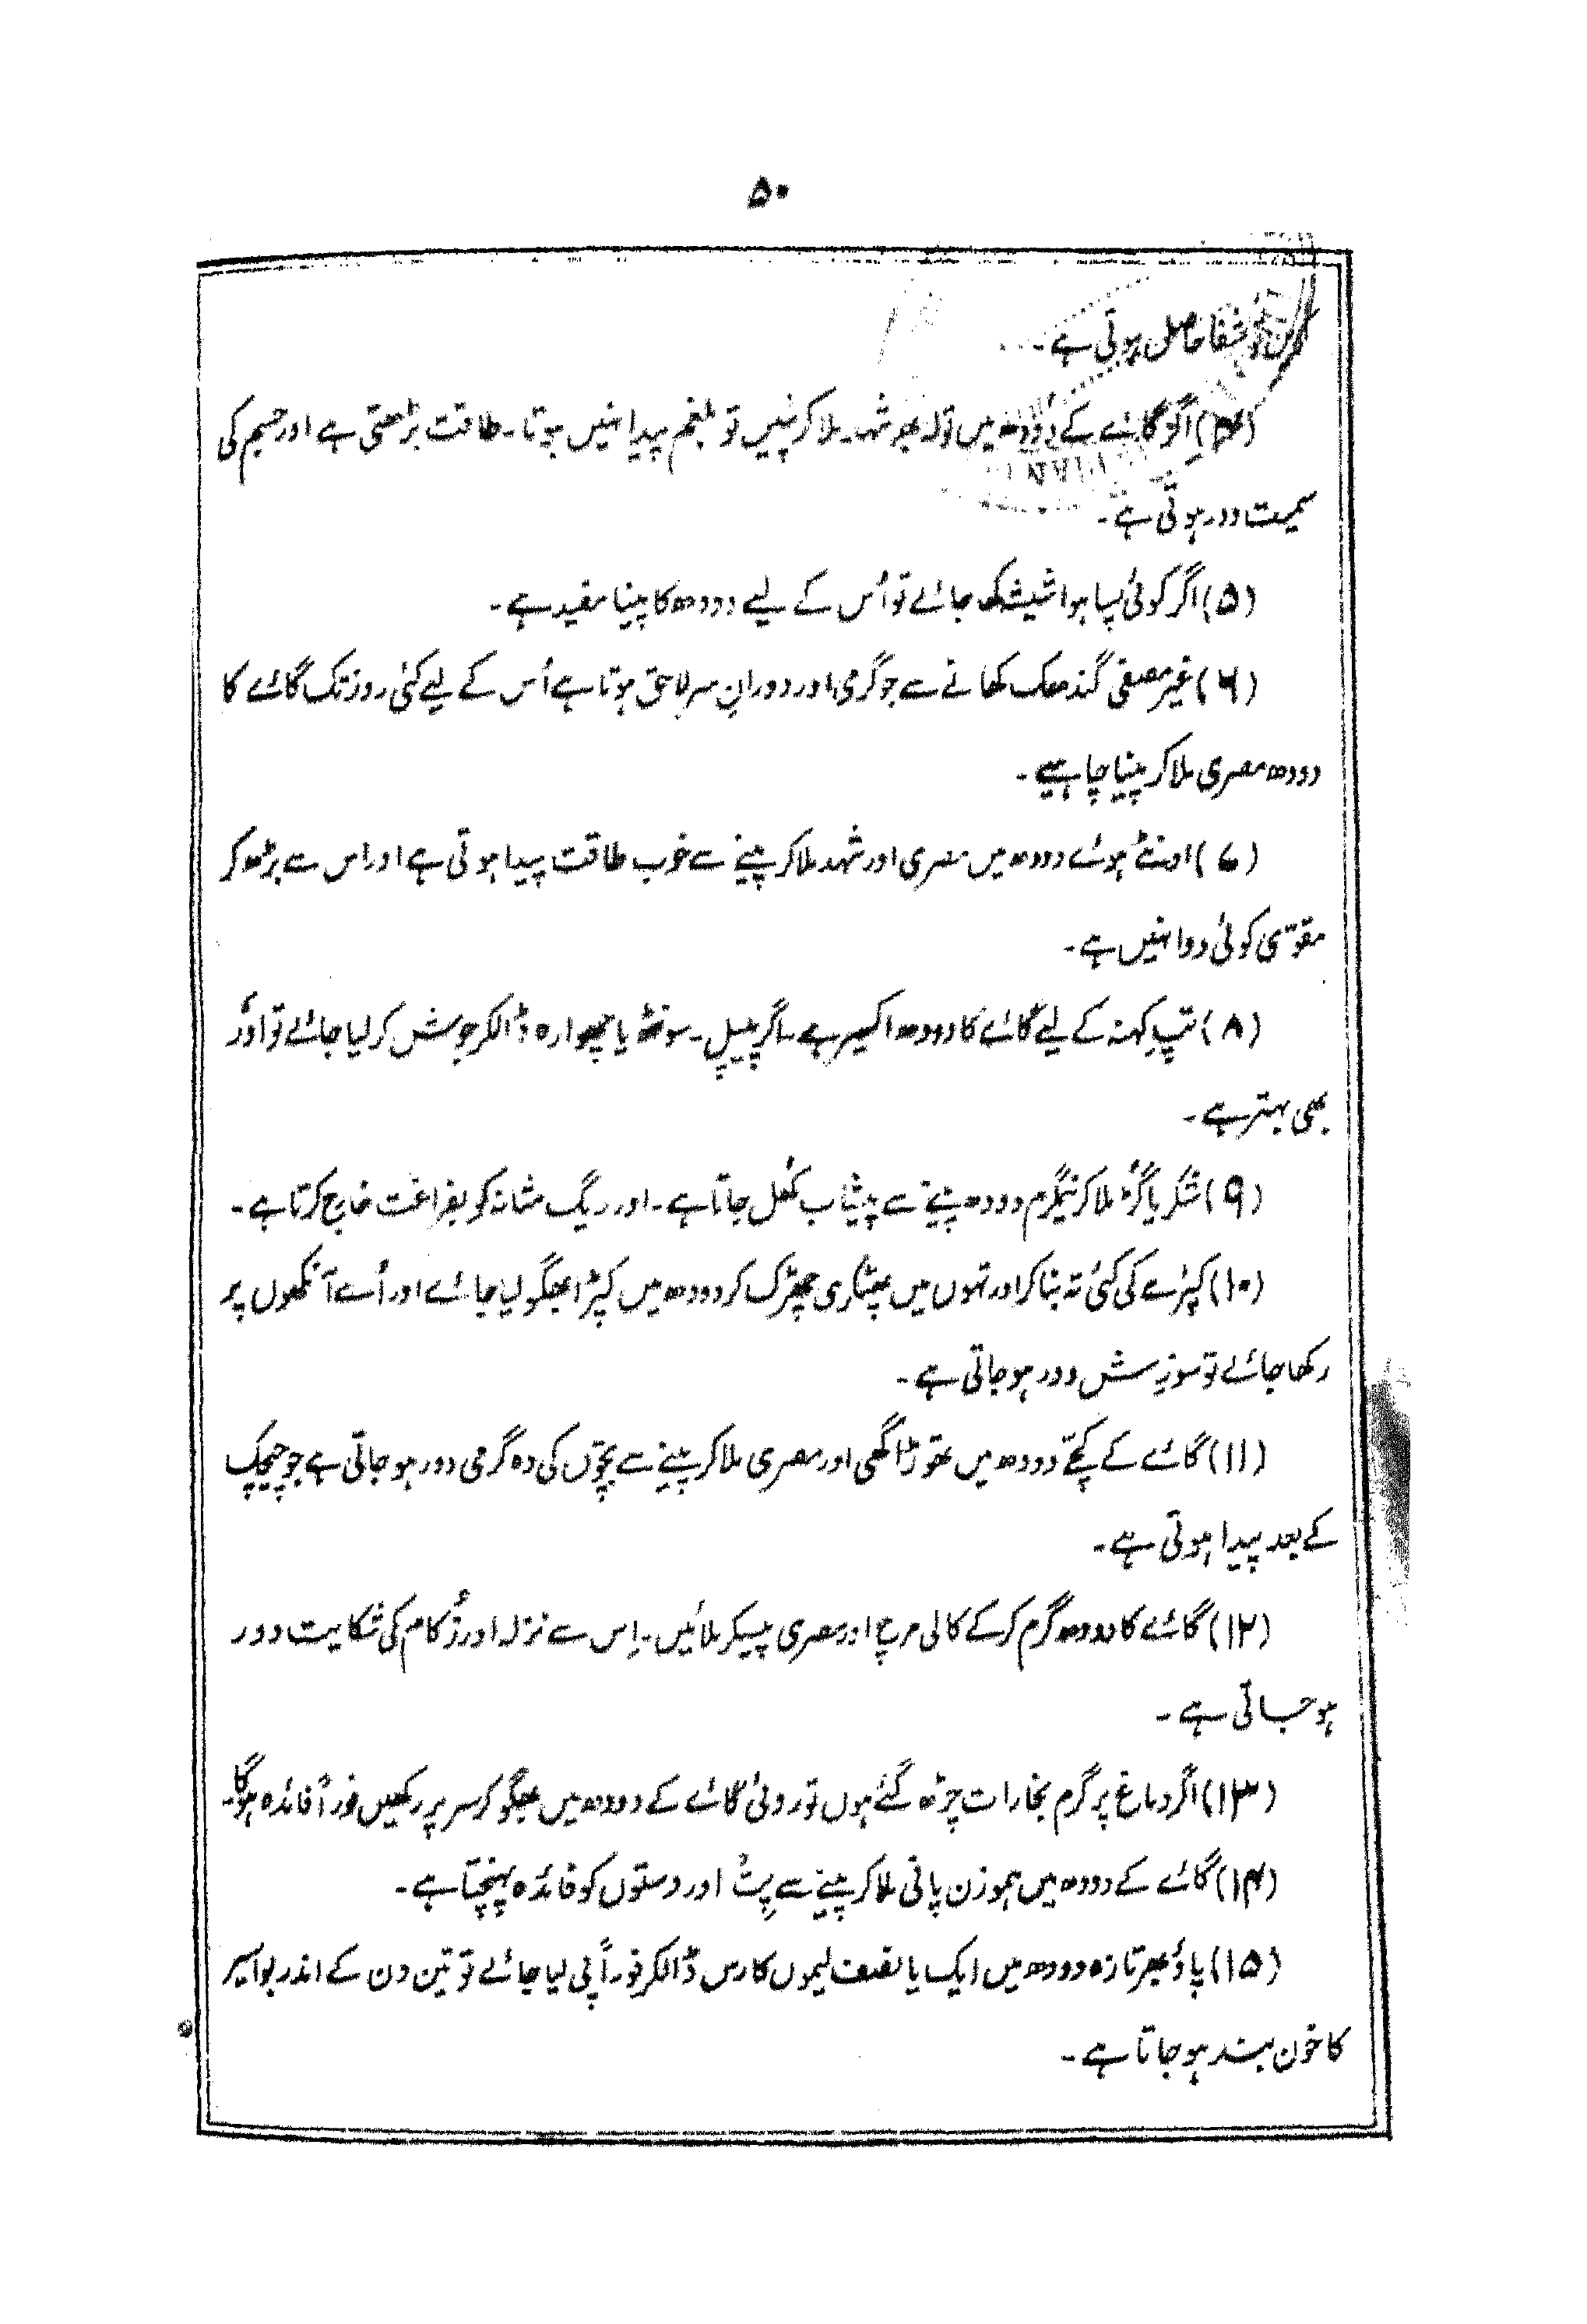 ۵۰
شفا حاصل ہوتی ہے۔
(۴) اگر گائے کے دودھ میں تولہ بھر شہد ملا کر پئیں تو بلغم پیدا نہیں ہوتا۔ طاقت بڑھتی ہے اور جسم کی
سمیت دور ہوتی ہے۔
(۵) اگر کوئی پسا ہوا شیشہ کھا جائے تو اُس کے لیے دودھ کا پینا مفید ہے۔
(۶) غیر مصفی گندھک کھانے سے جو گرمی اور دورانِ سر لاحق ہوتا ہے اُس کے لیے کئی روز تک گائے کا
دودھ مصری ملا کر پینا چاہیے۔
(۷) اونٹے ہوئے دودھ میں مصری اور شہد ملا کر پینے سے خوب طاقت پیدا ہوتی ہے اور اس سے بڑھ کر
مقوّی کوئی دوا نہیں ہے۔
(۸) تپِ کہنہ کے لیے گائے کا دودھ اکسیر ہے۔ اگر پیپل۔ سونٹھ یا چھوارہ ڈالکر جوش کر لیا جائے تو اَور
بھی بہتر ہے۔
(۹) شکر یا گُڑ ملا کر نیمگرم دودھ پینے سے پیشاب کُھل جاتا ہے۔ اور ریگ مثانہ کو بفراغت خارج کرتا ہے۔
(۱۰) کپڑے کی کئی تہ بنا کر اور تہوں میں پھٹکری چھڑک کر دودھ میں کپڑا بھگو لیا جائے اور اُسے آنکھوں پر
رکھا جائے تو سوزش دور ہو جاتی ہے۔
(۱۱) گائے کے کچے دودھ میں تھوڑا گھی اور مصری ملا کر پینے سے بچّوں کی وہ گرمی دور ہو جاتی ہے جو چیچک
کے بعد پیدا ہوتی ہے۔
(۱۲) گائے کا دودھ گرم کر کے کالی مرچ اور مصری پیسکر ملائیں۔ اِس سے نزلہ اور زُکام کی شکایت دور
ہو جاتی ہے۔
(۱۳) اگر دماغ پر گرم بخارات چڑھ گئے ہوں تو روئی گائے کے دودھ میں بھگو کر سر پر رکھیں فوراً فائدہ ہوگا۔
(۱۴) گائے کے دودھ میں ہموزن پانی ملا کر پینے سے پِت اور دستوں کو فائدہ پہنچتا ہے۔
(۱۵) پاؤ بھر تازہ دودھ میں ایک یا نصف لیموں کا رس ڈالکر فوراً پی لیا جائے تو تین دن کے اندر بواسیر
کا خون بند ہو جاتا ہے۔